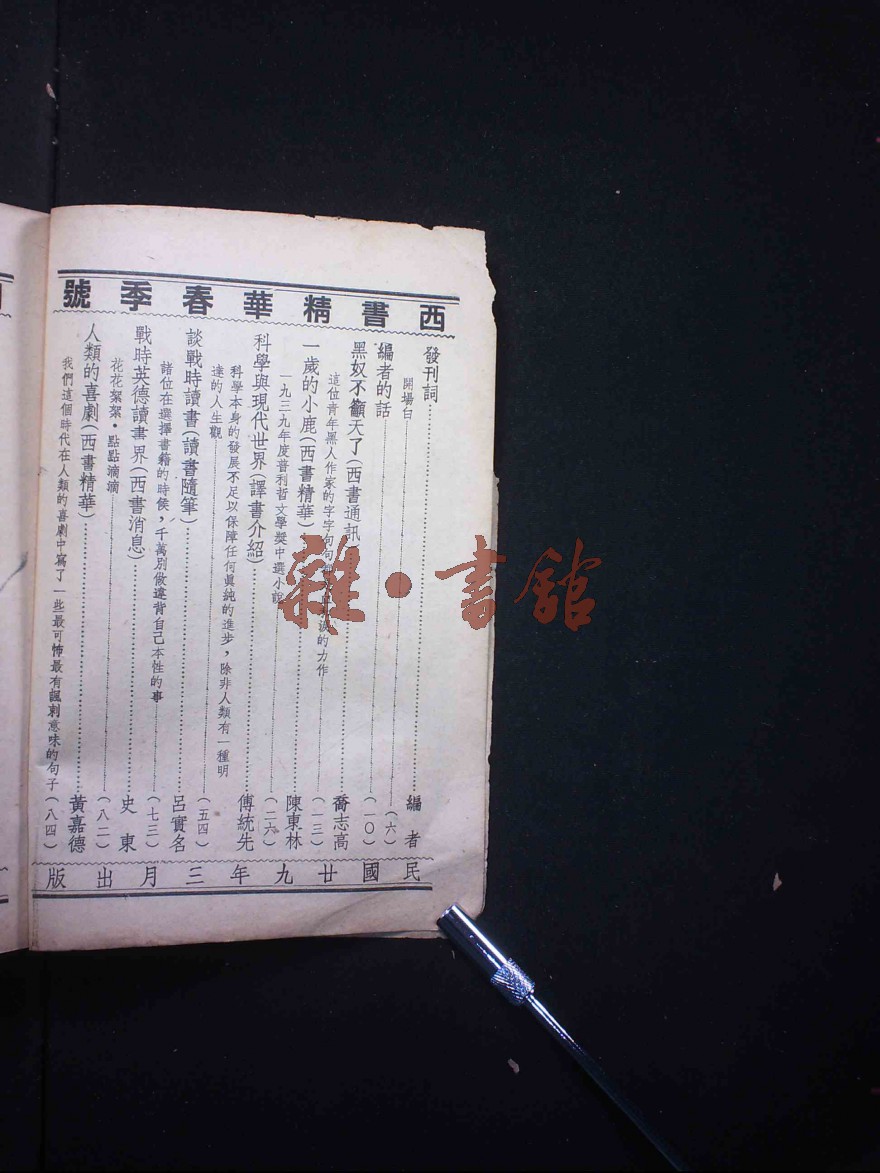 西書精華春季號
發刊詞……編者
開場白……(六)
編者的話……(一〇)
黑奴不籲天了(西書通訊……喬志高
這位青年黑人作家的字字句句的力作……(一三)
一歲的小鹿(西書精華)……陳東林
一九三九年度普利哲文學獎中選小說……(二六)
科學與現代世界(譯書介紹)……傅統先
科學本身的發展不足以保障任何眞純的進步,除非人類有一種明
達的人生觀……(五四)
談戰時讀書(讀書隨筆)……呂實名
諸位在選擇書籍的時候,千萬別做違背自己本性的事……(七三)
戰時英德讀書界(西書消息)……史東
花花絮絮·點點滴滴……(八二)
人類的喜劇(西書精華)……黃嘉德
我們這個時代在人類的喜劇中寫了一些最可怖最有諷刺意味的句子(八四)
民國廿九年三月出版
雜·書館